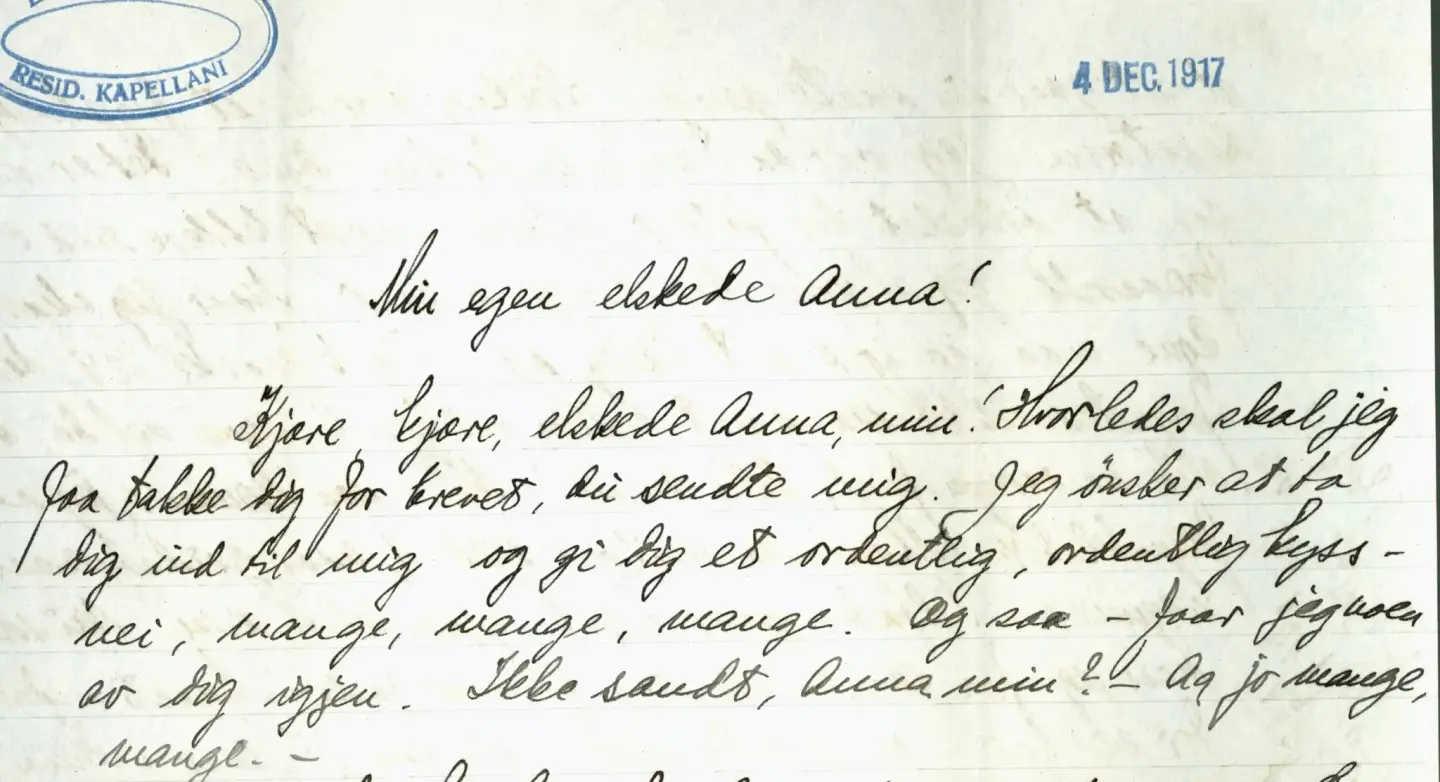 RESID. KAPELLANI
4 DEC. 1917
Min egen elskede Anna!
Kjære, kjære, elskede Anna, min! Hvorledes skal jeg
faa takke dig for brevet, du sendte mig. Jeg ønsker at ta
dig ind til mig og gi dig et ordentlig, ordentlig kyss -
nei, mange, mange, mange. Og saa - faar jeg noen
av dig igjen. Ikke sandt, Anna min? - Aa jo mange,
mange. -